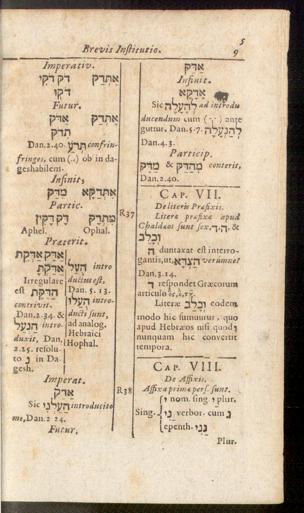 Brevis Institutio.
5
9
Imperativ.
אתדק דק דקי
דקו
Futur.
אתדק אדק
תדק
Dan.2.40. תרע confrin-
fringes, cum (..) ob in da-
geshabilem.
Infinit,
אתדקא מדק
Partic.
מתדק דק דקין
Aphel. Ophal.
Præterit.
אדק אדקת
אדקת
Irregulare
est הדקת
contrivit.
Dan.2.34. &
הנעל intro-
duxit, Dan.
2.25. resolu-
to נ in Da-
gesh.
העל intro
ductus est,
Dan. 5. 13.
העלו intro-
ducti sunt,
ad analog.
Hebraici
Hophal.
Imperat.
אדק
Sic העלני introducito
me, Dan. 2 24.
Futur.
R37
R38
אדק
Infinit.
אדקא
Sic להעלה ad introdu
ducendum cum ante
guttur. Dan. 5.7. להנעלה
Dan.4.3.
Particip.
מהדק & מדק conterit,
Dan.2.40.
CAP. VII.
De literis Præfixis.
Literæ præfixæ apud
Chaldæos sunt sex, ה.ד. &
וכלב
ה duntaxat est interro-
gantis, ut, הצדא verumne?
Dan.3.14.
ד respondet Græcorum
articulo ὁ, ἡ, τό.
Literæ וכלב eodem
modo hic sumuntur, quo
apud Hebræos nisi quod ו
nunquam hic convertit
tempora.
CAP. VIII.
De Affixis.
Affixa primæ pers. sunt.
Sing. י nom. sing. י plur.
ני verbor. cum נ
epenth. נני
Plur.